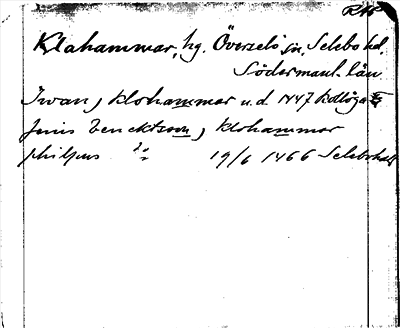 Klahammar, hg. Överselö sn, Selebo hd.
Södermanl. län
Iwan j klohammar u.d. 1447
Jenis bencktson j klohammar
philpus 19/6 1466 Selebohd